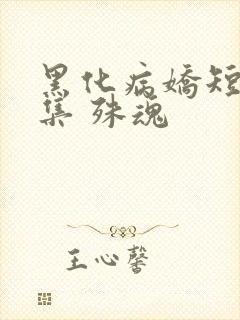 黑化病嬌短
集 殊魂
王心馨